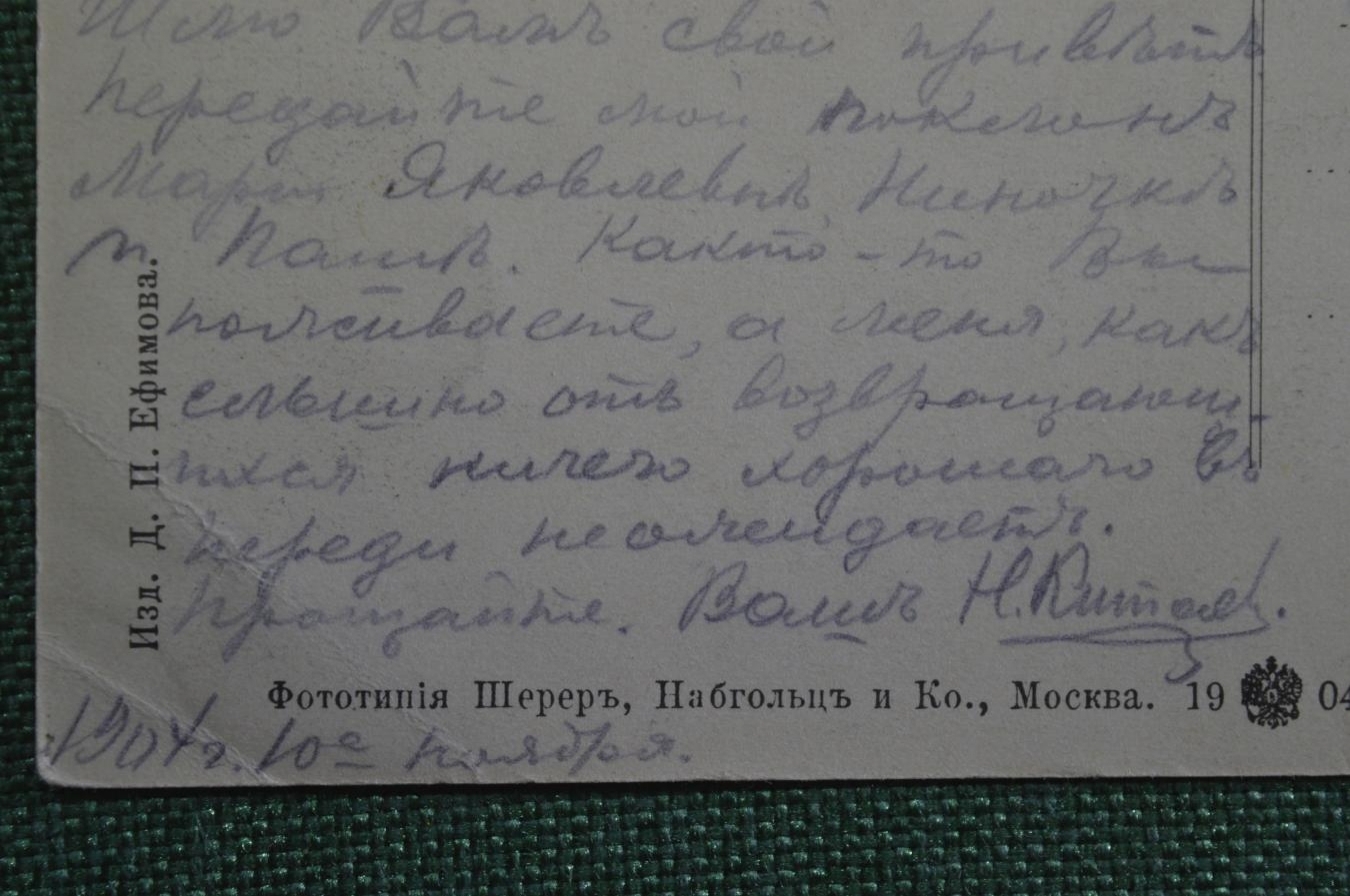 Шлю Вамъ свой привѣтъ
передайте мой поклонъ
Маріи Яковлевнѣ, Ниночкѣ
и Пашѣ. Какъ-то Вы
поживаете, а меня, какъ
слышно отъ возвращающ-
ихся ничего хорошаго въ
переди неожидаетъ.
Прощайте. Вашъ Н. Китаев.
Изд. Д. П. Ефимова.
Фототипія Шереръ, Набгольцъ и Ко., Москва. 19 04
1904 г. 10е ноября.